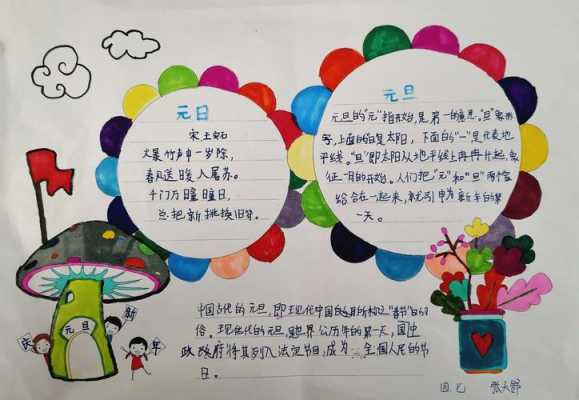 元日
宋 王
爆竹声中一岁除,
春风送暖入屠苏。
千门万曈曈日,
总把新桃换旧符。
元旦
元旦的“元”指开始,是第一的意思。“旦”象形
字,上面的“日”是太阳,下面的“一”是代表地
平线。“旦”即太阳从地平线上冉冉升起,象
征一日的开始。人们把“元”和“旦”两个字
结合在一起来,就引申为新年的第
一天。
庆
元旦
新
年
中国古代的元旦,即现代中国的
俗,现在代的元旦,是世界公历年的第一天,国中
政政府将其列入法定节日,成为全国人民的节
日。
四